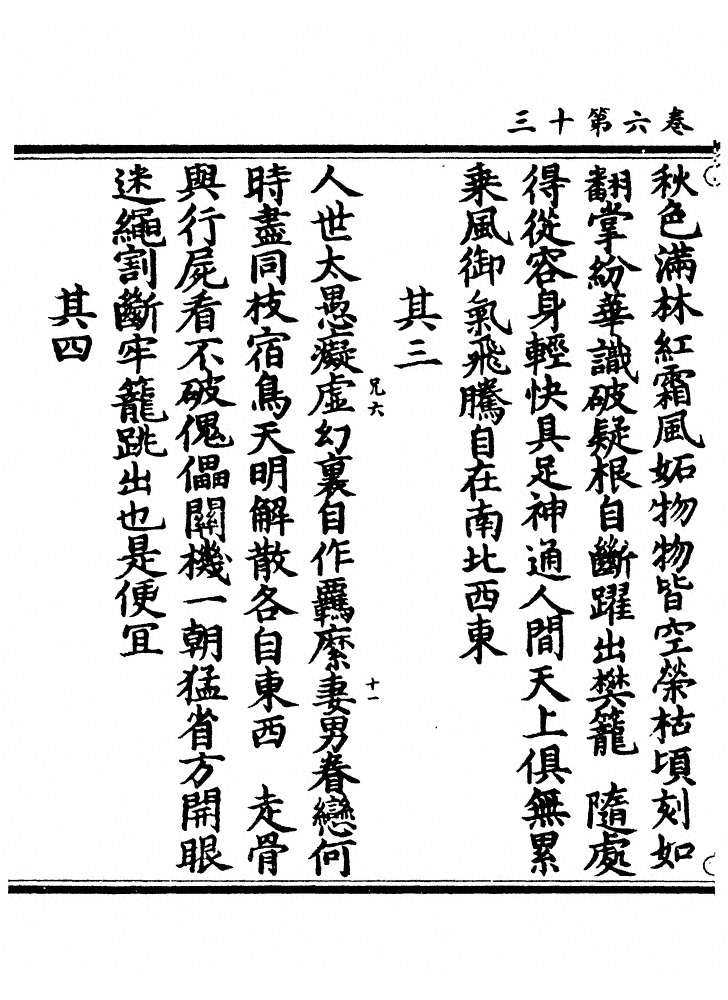 三十第六卷
秋色滿林紅霜風妬物物皆空榮枯頃刻如
翻掌紛華識破疑根自斷躍出樊籠　隨處
得從容身輕快具足神通人間天上俱無累
乘風御氣飛騰自在南北西東
其三
兄六
十一
人世太愚癡虛幻裏自作羈縻妻男眷戀何
時盡同枝宿鳥天明解散各自東西　走骨
與行屍看不破傀儡關機一朝猛省方開眼
迷繩割斷牢籠跳出也是便宜
其四